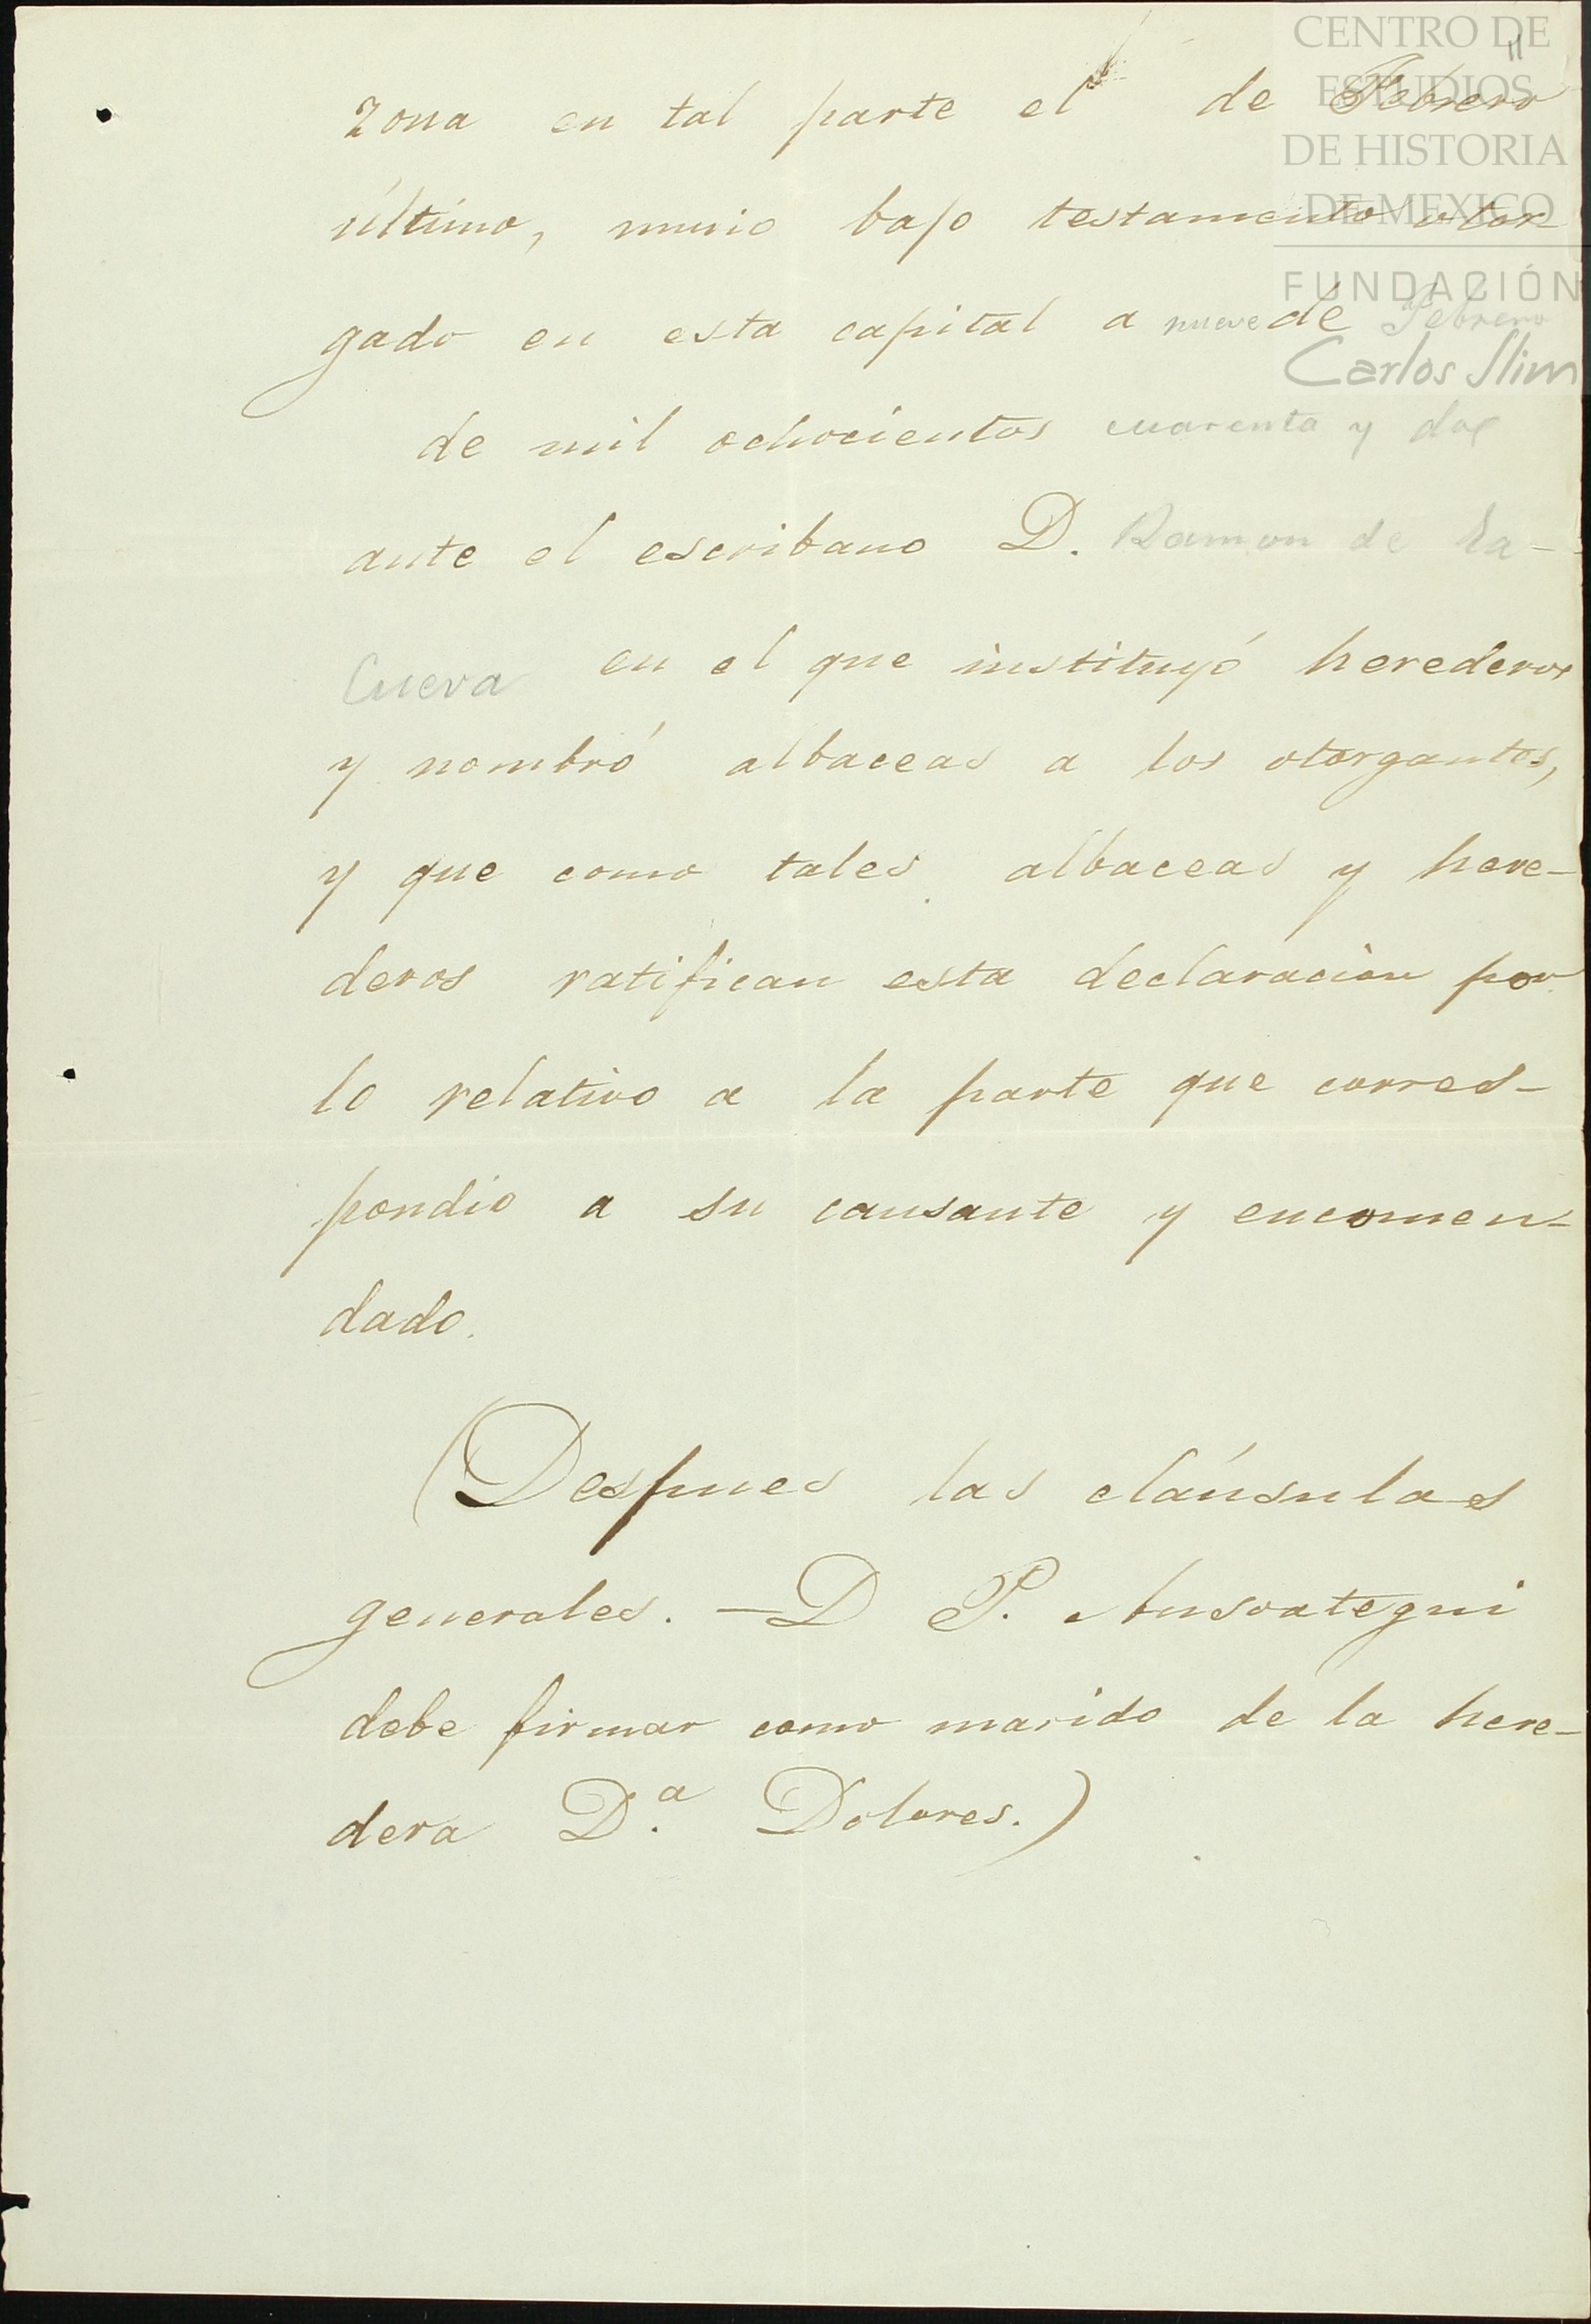 11
zona en tal parte el de Febrero
último, murio bajo testamento otor
gado en esta capital a nueve de Febrero
de mil ochocientos cuarenta y dos
ante el escribano D. Ramon de la-
Cueva en el que instituyó herederos
y nombró albaceas a los otorgantes,
y que como tales albaceas y here-
deros ratifican esta declaración por
lo relativo a la parte que corres-
pondio a su causante y encomen-
dado.
(Despues las cláusulas
generales. — D P. Ansoategui
debe firmar como marido de la here-
dera D.ª Dolores.)
CENTRO DE
ESTUDIOS
DE HISTORIA
DE MEXICO
FUNDACIÓN
Carlos Slim